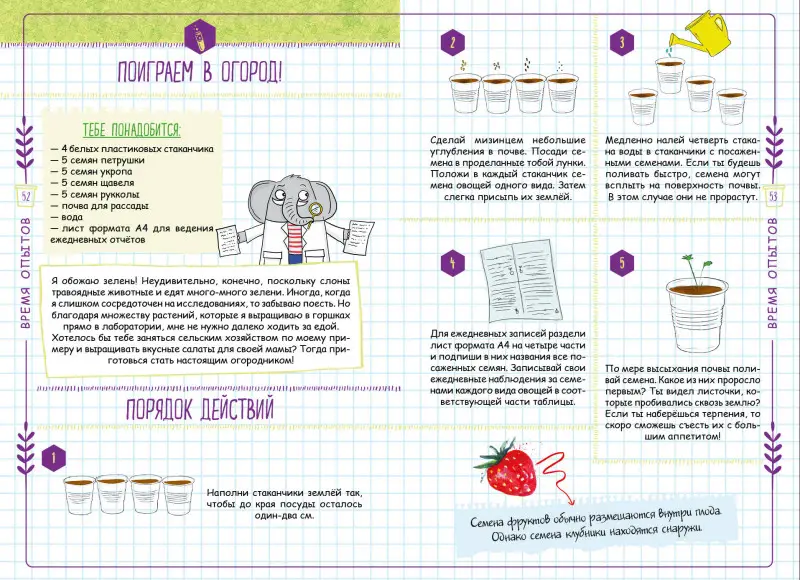 ПОИГРАЕМ В ОГОРОД!
ТЕБЕ ПОНАДОБИТСЯ:
— 4 белых пластиковых стаканчика
— 5 семян петрушки
— 5 семян укропа
— 5 семян щавеля
— 5 семян рукколы
— почва для рассады
— вода
— лист формата А4 для ведения
ежедневных отчётов
Я обожаю зелень! Неудивительно, конечно, поскольку слоны
травоядные животные и едят много-много зелени. Иногда, когда
я слишком сосредоточен на исследованиях, то забываю поесть. Но
благодаря множеству растений, которые я выращиваю в горшках
прямо в лаборатории, мне не нужно далеко ходить за едой.
Хотелось бы тебе заняться сельским хозяйством по моему при-
меру и выращивать вкусные салаты для своей мамы? Тогда при-
готовься стать настоящим огородником!
ПОРЯДОК ДЕЙСТВИЙ
1
Наполни стаканчики землёй так,
чтобы до края посуды осталось
один-два см.
52
ВРЕМЯ ОПЫТОВ
2
Сделай мизинцем небольшие
углубления в почве. Посади се-
мена в проделанные тобой лунки.
Положи в каждый стаканчик се-
мена овощей одного вида. Затем
слегка присыпь их землёй.
3
Медленно налей четверть стака-
на воды в стаканчики с посажен-
ными семенами. Если ты будешь
поливать быстро, семена могут
всплыть на поверхность почвы.
В этом случае они не прорастут.
4
Для ежедневных записей раздели
лист формата А4 на четыре части
и подпиши в них названия все по-
саженных семян. Записывай свои
ежедневные наблюдения за семе-
нами каждого вида овощей в соот-
ветствующей части таблицы.
5
По мере высыхания почвы поли-
вай семена. Какое из них проросло
первым? Ты видел листочки, ко-
торые пробивались сквозь землю?
Если ты наберёшься терпения, то
скоро сможешь съесть их с боль-
шим аппетитом!
Семена фруктов обычно размещаются внутри плода.
Однако семена клубники находятся снаружи.
53
ВРЕМЯ ОПЫТОВ